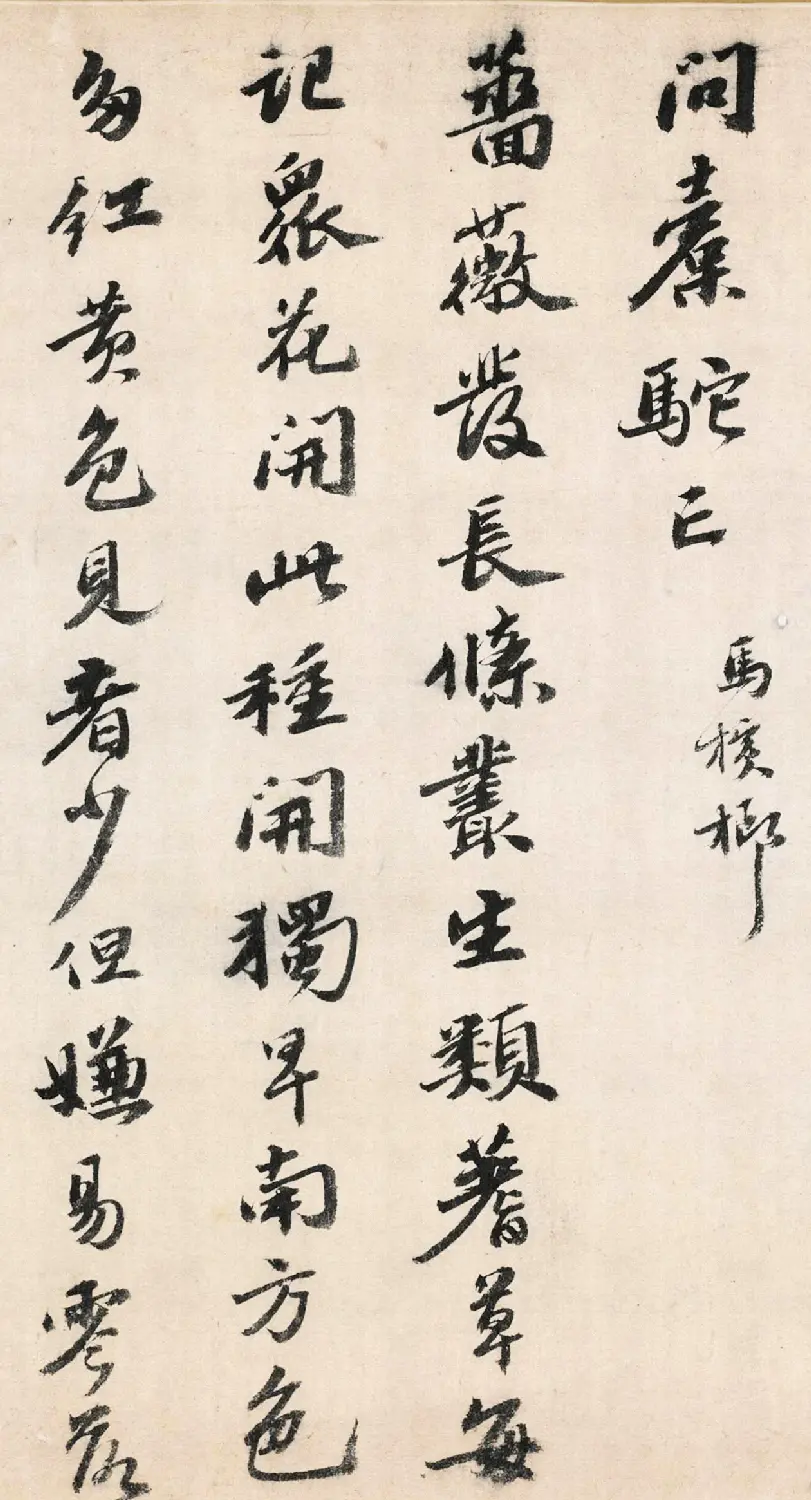 問橐駝亡
馬檳榔
薔薇發長條叢生類蓍草每
記眾花開此種開獨早南方色
多紅黄色見者少但嫌易零落